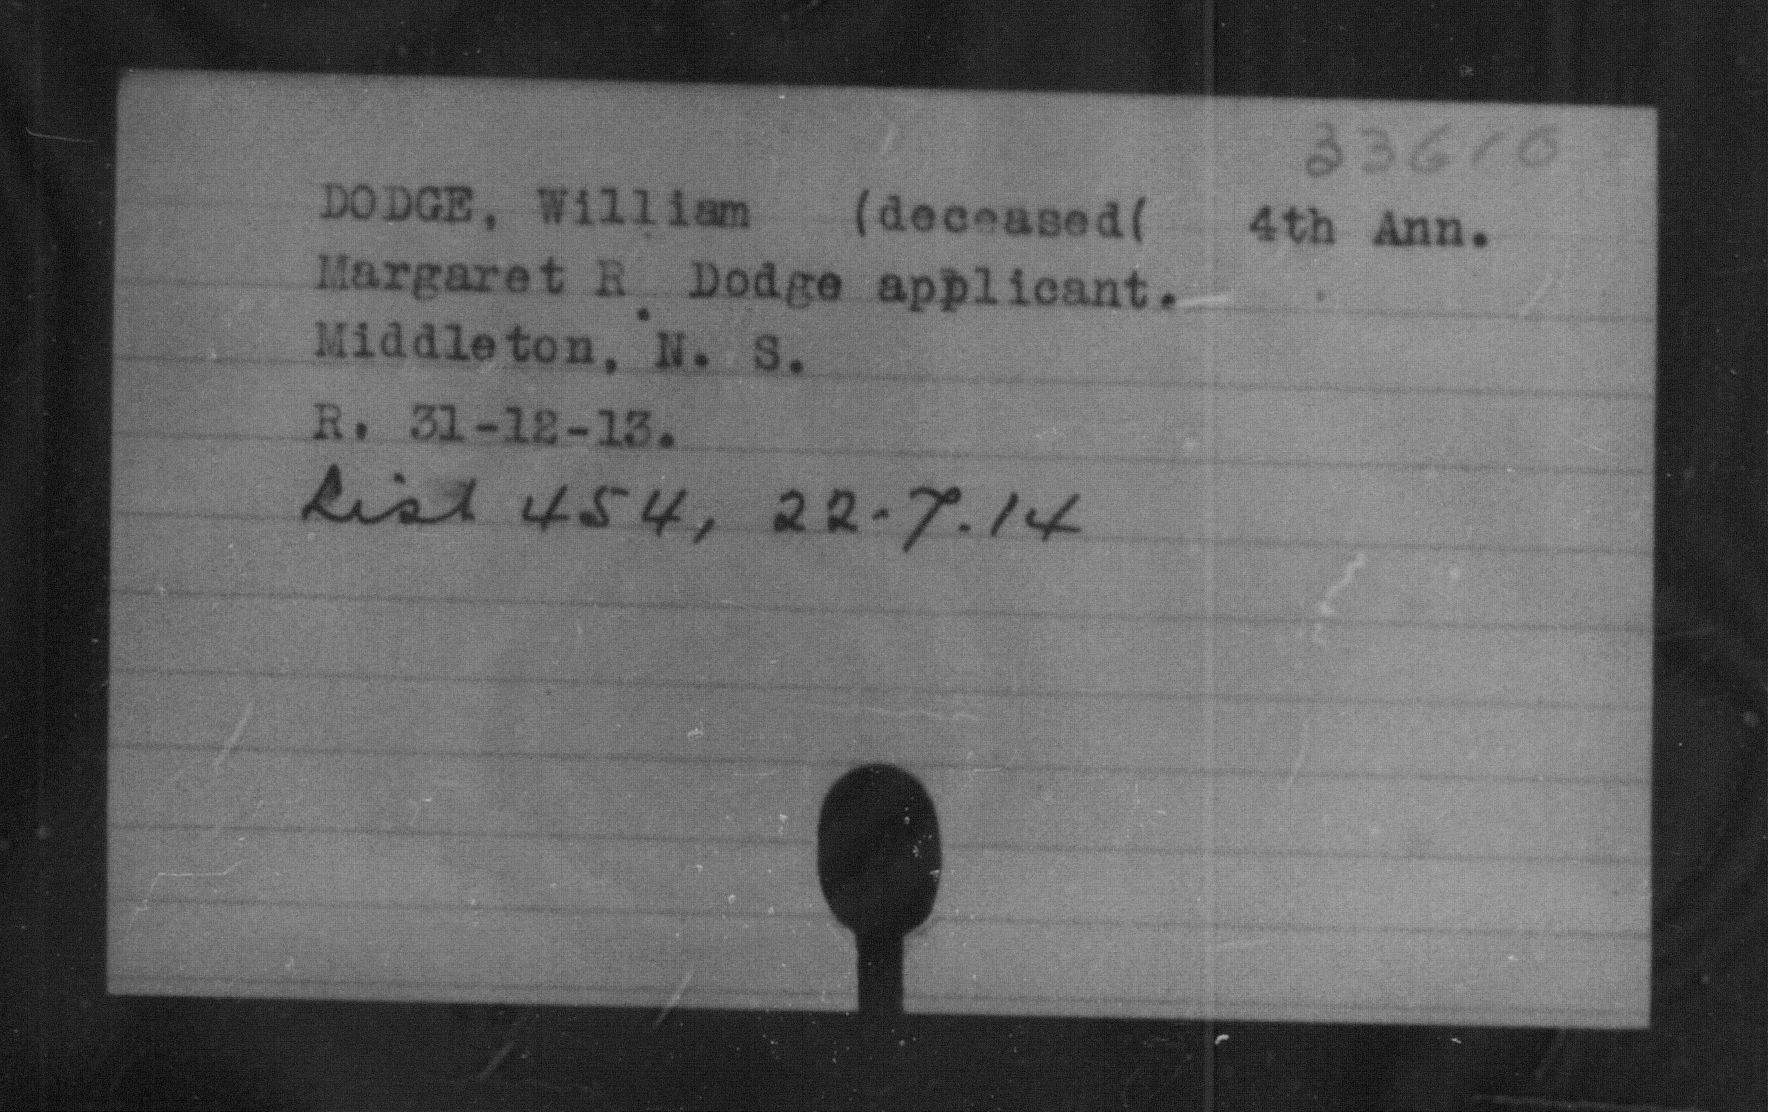 33610
DODGE, William (deceased( 4th Ann.
Margaret R. Dodge applicant.
Middleton, N. S.
R. 31-12-13.
List 454, 22-7.14